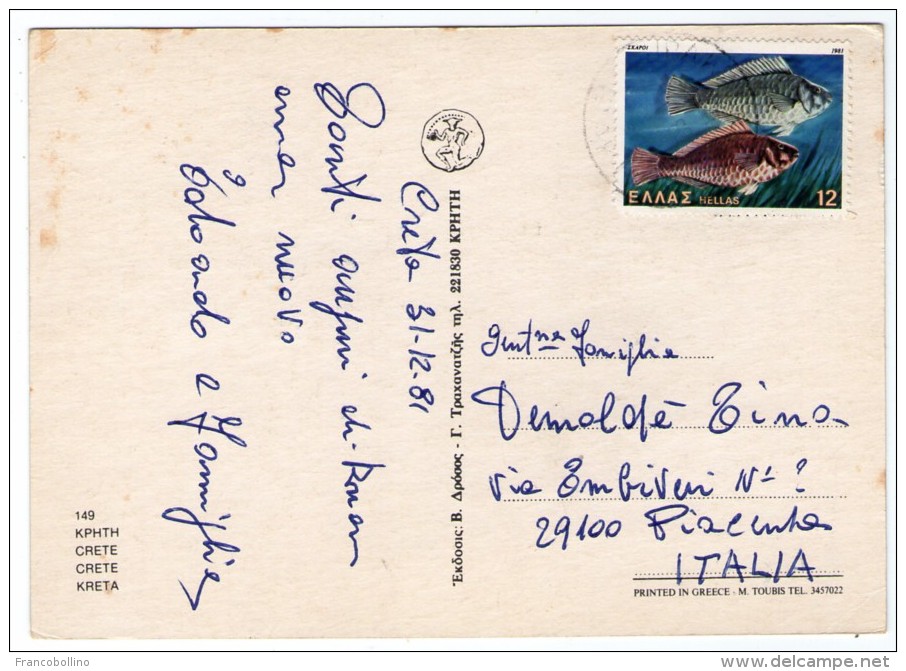 ΣΚΑΡΟΙ 1981
ΕΛΛΑΣ HELLAS 12
Creta 31-12-81
auguri di buon
nuovo
e famiglia
Gent.ma Famiglia
Demaldè Tina
via
29100 Piacenza
ITALIA
Έκδοσις: Β. Δρόσος - Γ. Τραχανατζής τηλ. 221830 ΚΡΗΤΗ
149
ΚΡΗΤΗ
CRETE
CRETE
KRETA
PRINTED IN GREECE - M. TOUBIS TEL. 3457022
Francobollino
delcampe.net